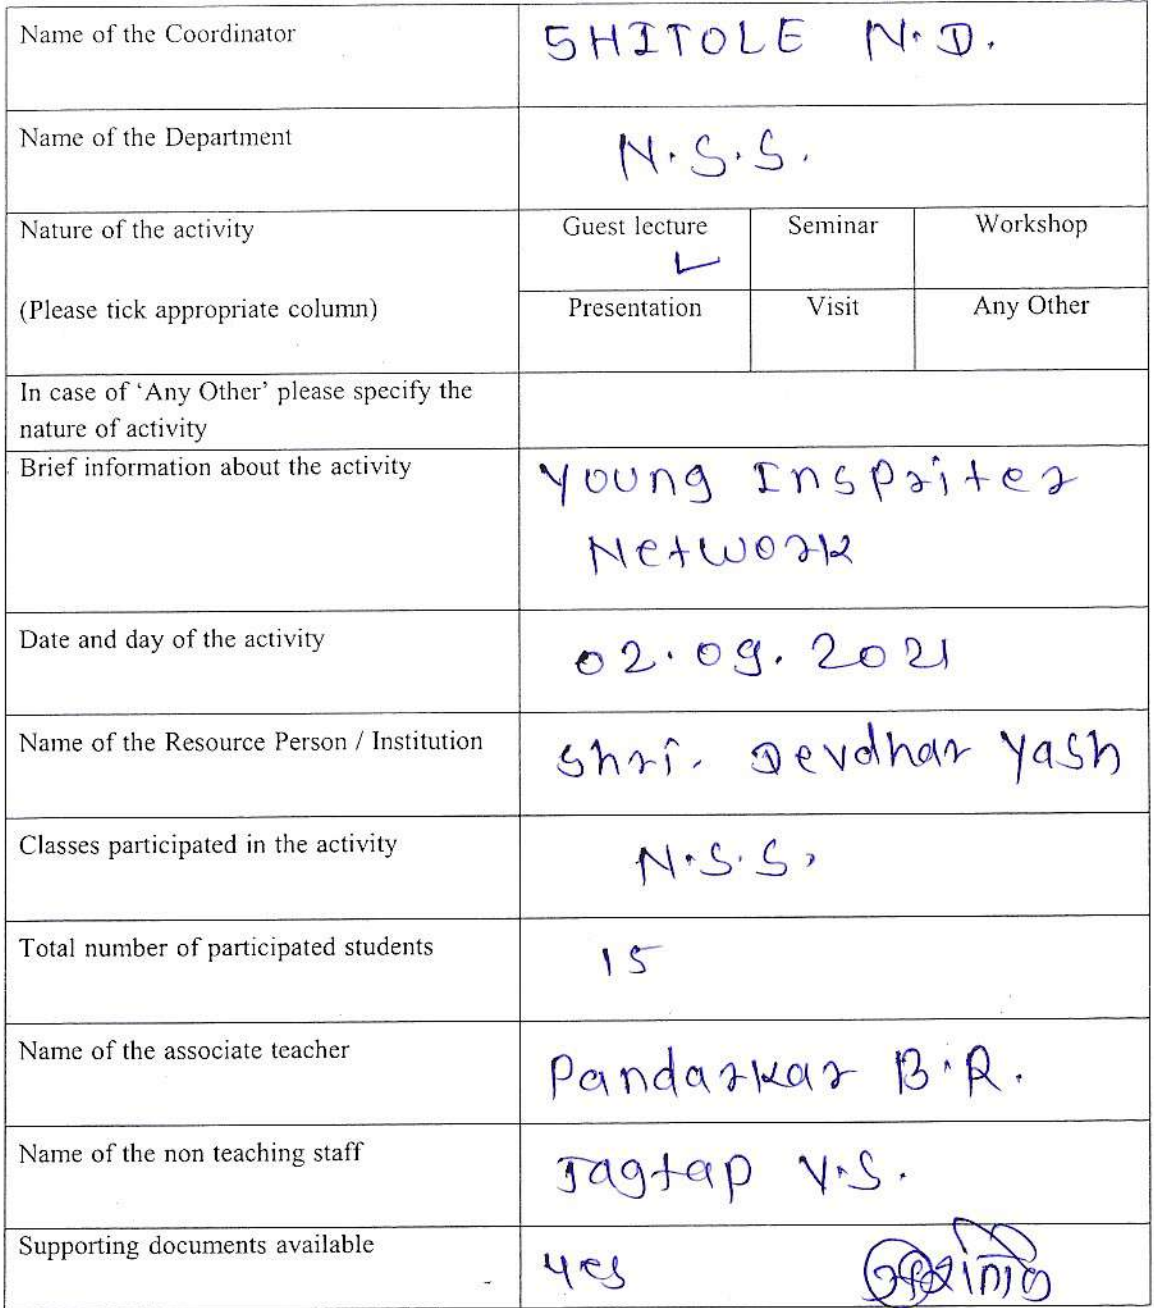 Name of the Coordinator SHITOLE N.D.
Name of the Department N.S.S.
Nature of the activity Guest lecture Seminar Workshop
✓
(Please tick appropriate column) Presentation Visit Any Other
In case of 'Any Other' please specify the
nature of activity
Brief information about the activity Young Inspriter
Network
Date and day of the activity 02.09.2021
Name of the Resource Person / Institution Shri. Devdhar Yash
Classes participated in the activity N.S.S.
Total number of participated students 15
Name of the associate teacher Pandarkar B.R.
Name of the non teaching staff Jagtap V.S.
Supporting documents available yes